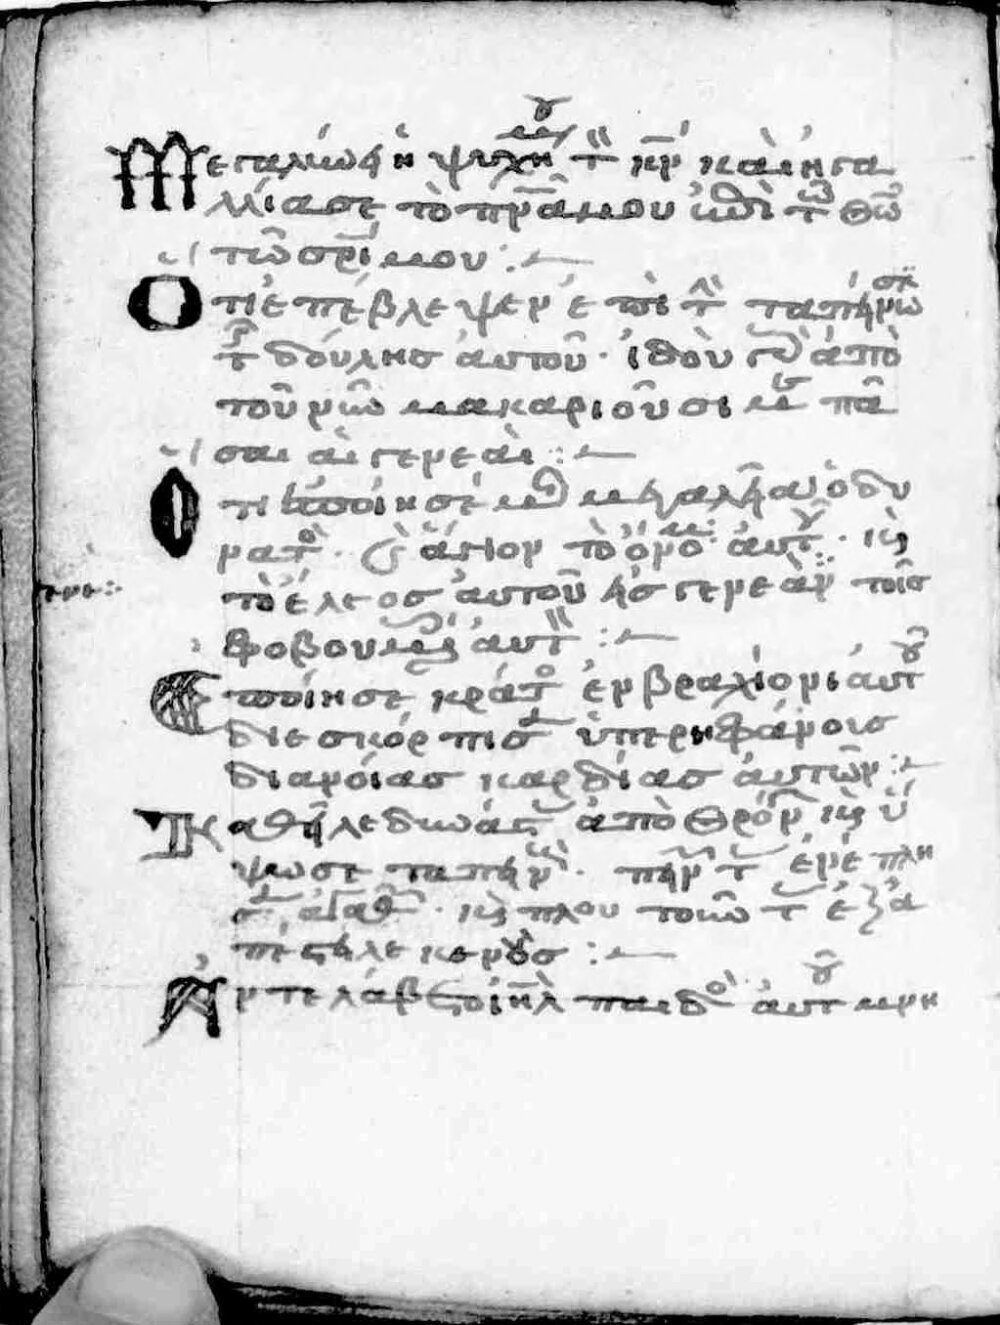 Μεγαλύνη ἡ ψυχή μου τὸν κν καὶ ἠγα
λίασε τὸ πνᾶ μου ἐπὶ τῶ θῶ
τῶ σρί μου :
Ὅτι ἐπέβλεψεν ἐπὶ τὴν ταπήνωσιν
τῆς δούλησ αὐτοῦ · ἰδοὺ γὰρ ἀπὸ
τοῦ νῦν μακαριοῦσι με πᾶ
σαι αἱ γενεαὶ :
Ὅτι ἐποίησέ μοι μεγαλῆα ὁ δυ
νατὸς · καὶ ἅγιον τὸ ὄνομα αὐτοῦ · κὶ
τὸ ἔλεοσ αὐτοῦ ἠσ γενεὰν τοῖσ
φοβουμένοις αὐτὸν :
Ἐποίησε κράτος ἐν βραχίονι αὐτοῦ
διεσκόρπισεν ὑπερηφάνοισ
διανοίασ καρδίασ αὐτῶν :
Καθῆλε δυνάστας ἀπὸ θρόνων κὶ ὕ
ψωσε ταπηνούς · πηνῶντας ἐνέπλη
σεν ἀγαθῶν · κὶ πλουτοῦντας ἐξα
πέστηλε κενοὺσ :
Ἀντελάβετο ἰηλ παιδὸς αὐτοῦ μνη